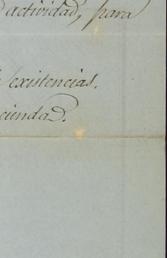 actividad, para
existencias.